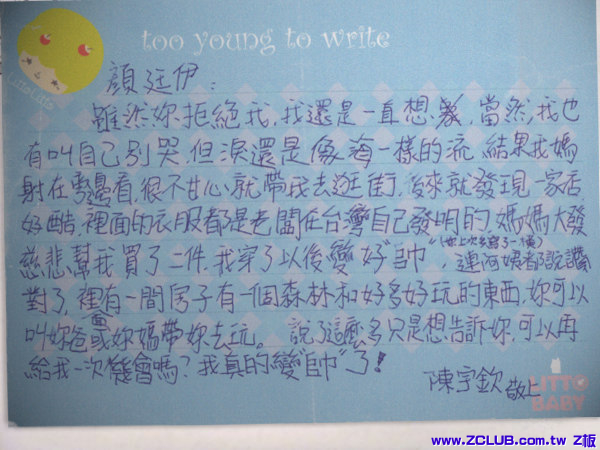 too young to write
顏廷伊:
雖然妳拒絕我,我還是一直想哭,當然,我也
有叫自己別哭,但淚還是像海一樣的流,結果我媽
射在旁邊看,很不甘心,就帶我去逛街,後來就發現一家店
好酷,裡面的衣服都是老闆在台灣自己發明的,媽媽大發
慈悲幫我買了二件,我穿了以後變好"帥"(妳上次多寫了一橫)連海姨都說讚
對了,裡有一間房子有一個森林和好多好玩的東西,妳可以
叫妳爸或妳媽帶妳去玩。 說了這麼多只是想告訴妳,可以再
給我一次機會嗎?我真的變"帥"了!
陳宇欽 敬上
LITTO
BABY
www.ZCLUB.com.tw Z板